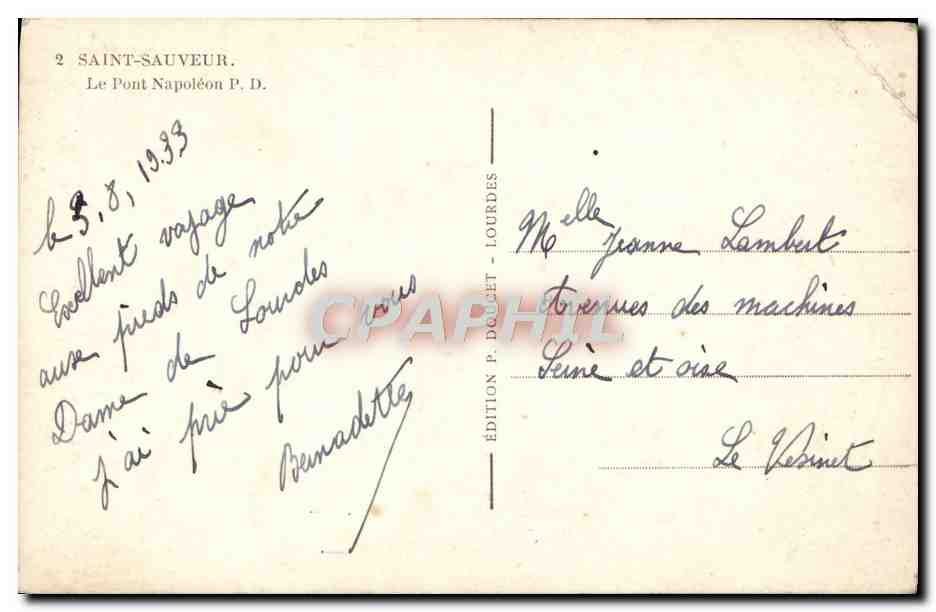 2 SAINT-SAUVEUR.
Le Pont Napoléon P. D.
le 3, 8, 1933
Excellent voyage
aux pieds de notre
Dame de Lourdes
j'ai prié pour vous
Bernadette
ÉDITION P. DOUCET - LOURDES
CPAPHIL
Melle Jeanne Lambert
Avenues des machines
Seine et oise
Le Vésinet